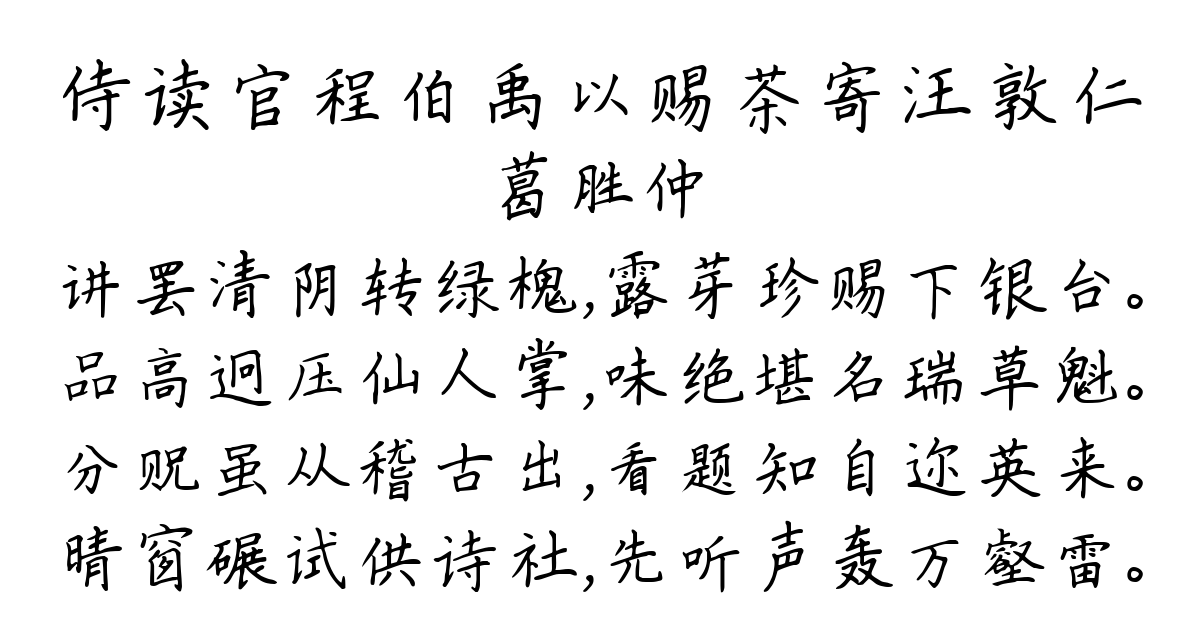 侍读官程伯禹以赐茶寄汪敦仁
葛胜仲
讲罢清阴转绿槐,露芽珍赐下银台。
品高迥压仙人掌,味绝堪名瑞草魁。
分贶虽从稽古出,看题知自迩英来。
晴窗碾试供诗社,先听声轰万壑雷。